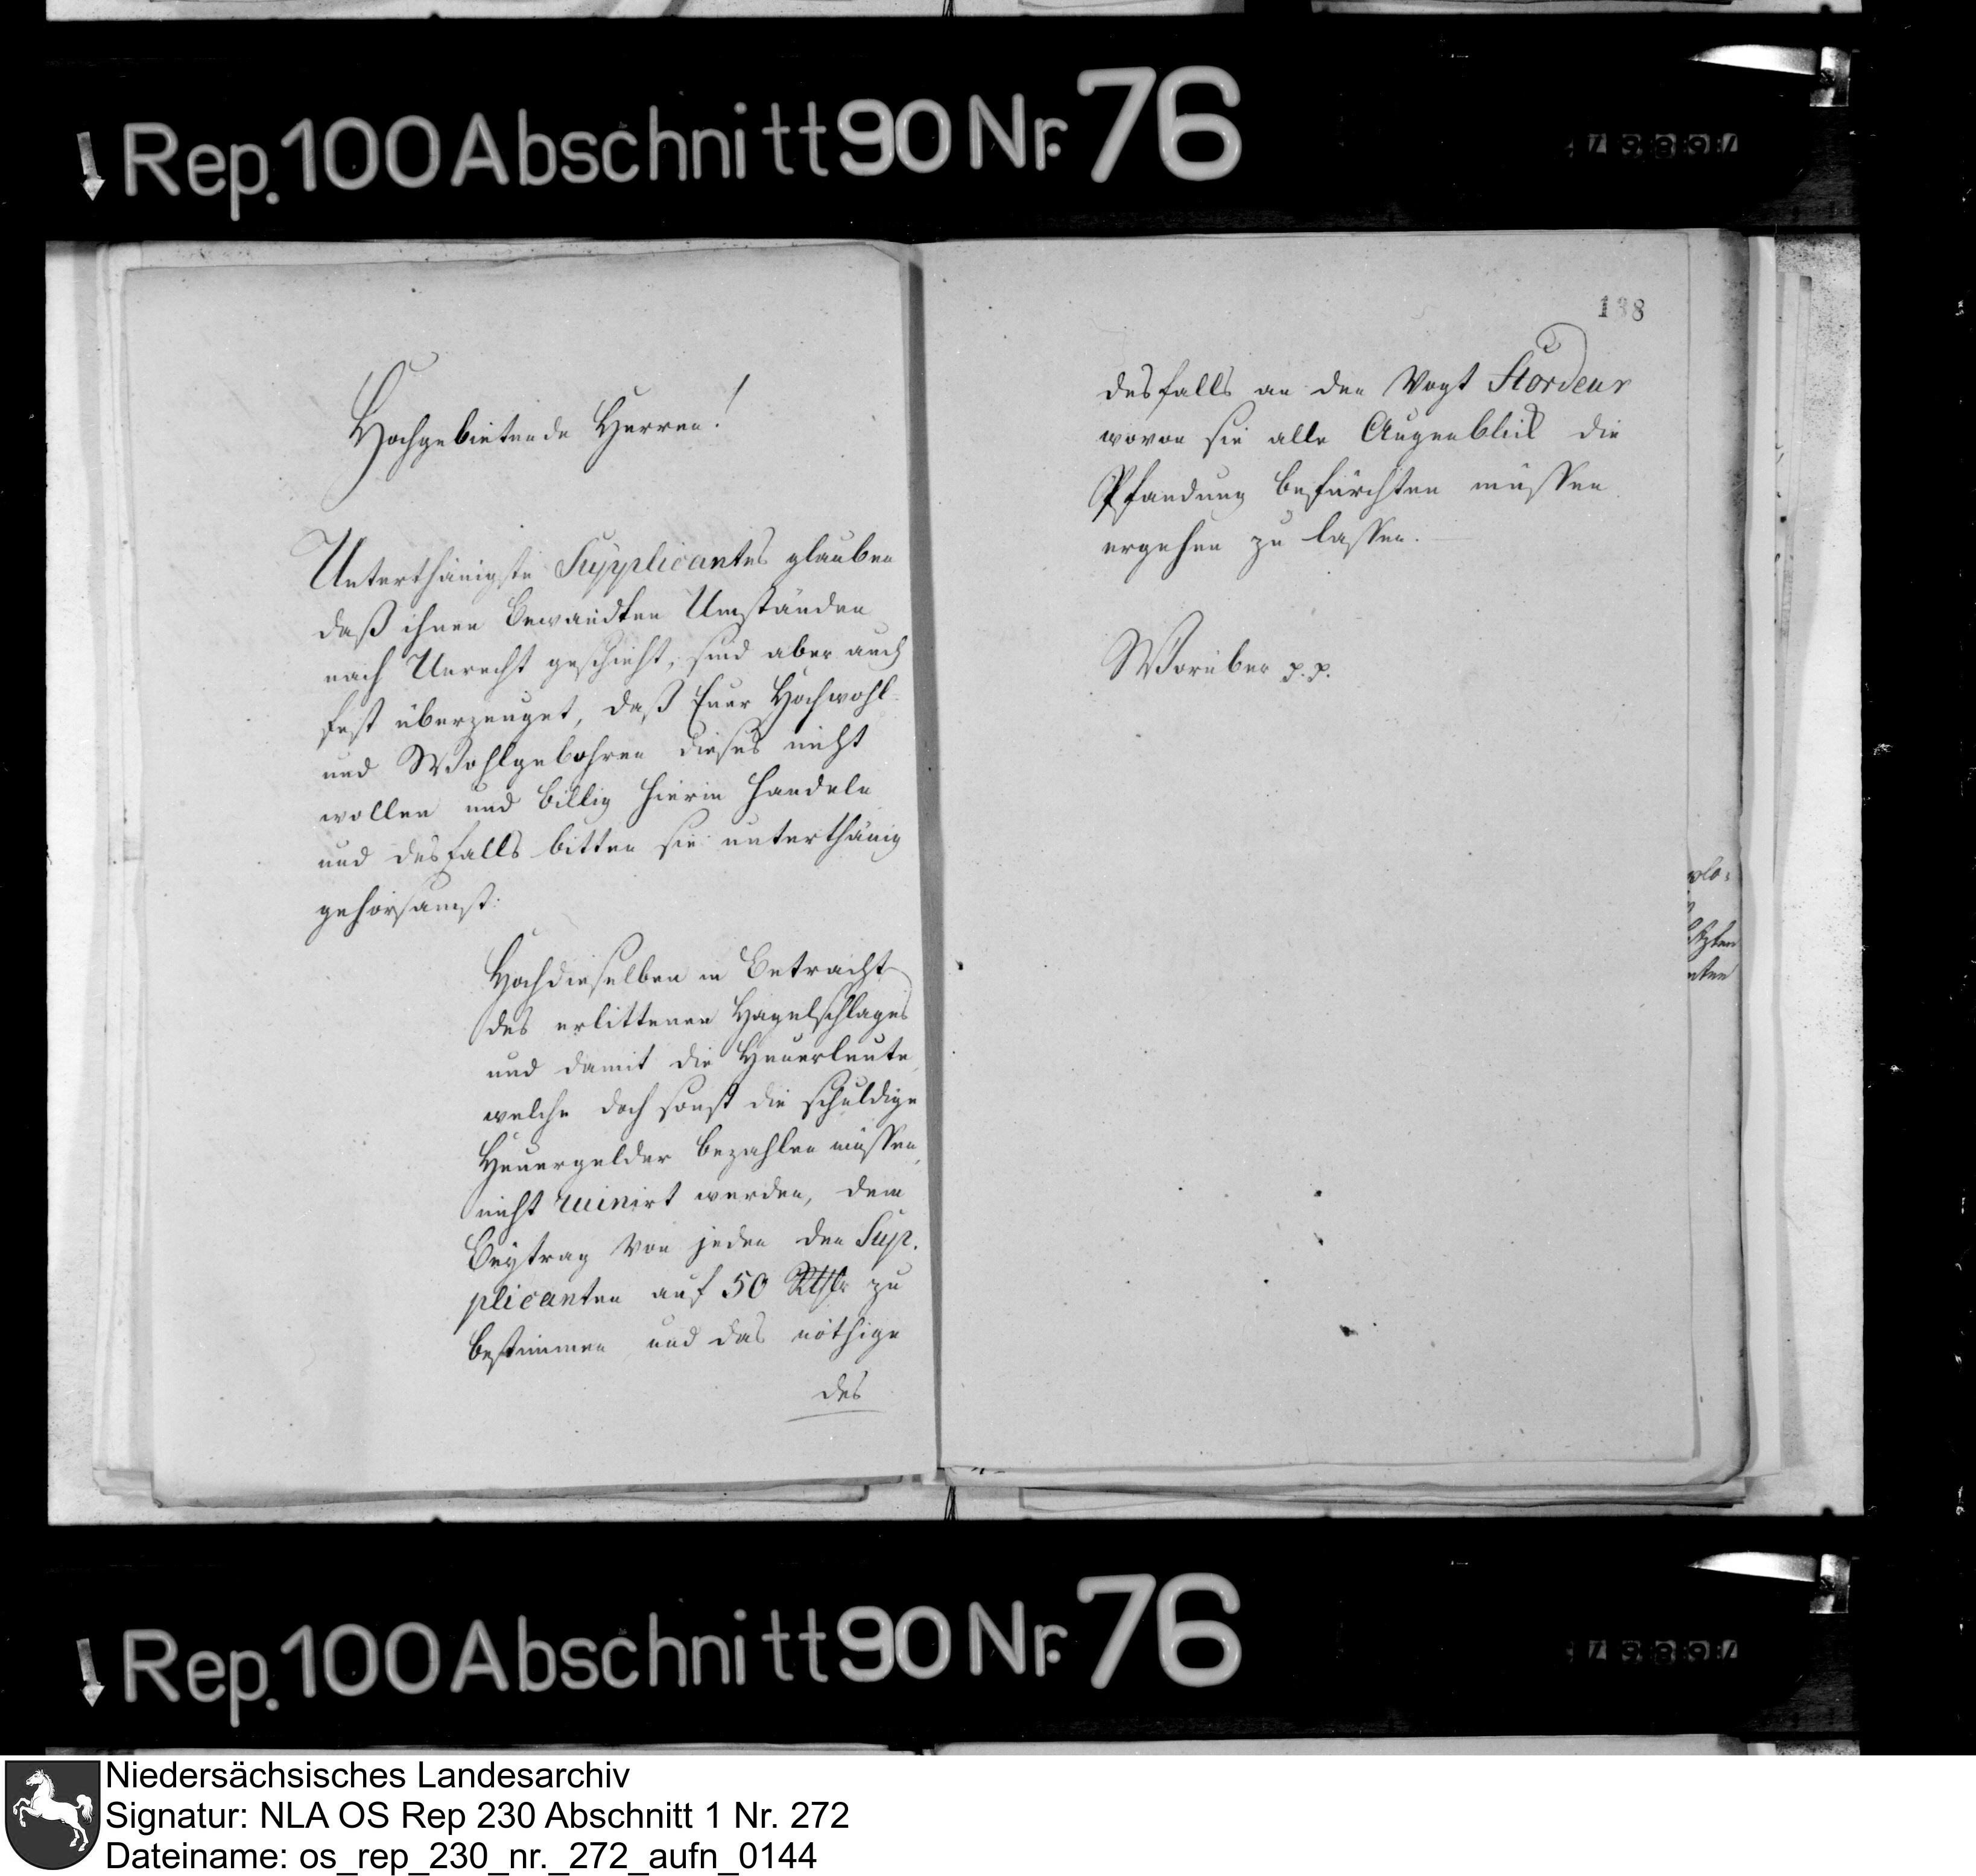 Rep. 100 Abschnitt 90 Nr. 76
Hochgebietende Herren!
Unterthänigste Supplicantes glauben
daß ihnen bewandten Umständen
nach Unrecht geschieht, sind aber auch
fest überzeuget, daß Euer Hochwohl-
und Wohlgebohren dieses nicht
wollen und billig hierin handeln
und desfalls bitten sie unterthänig
gehorsamst:
Hochdieselben in Betracht
des erlittenen Hagelschlages
und damit die Heuerleute,
welche doch sonst die schuldige
Heuergelder bezahlen müssen,
nicht ruinirt werden, dem
Beytrag von jeden den Sup.
plicanten auf 50 Rthlr zu
bestimmen und das nöthige
des
138
desfalls an den Vogt Stordeur
wovon sie alle Augenblick die
Pfandung befürchten müssen
ergehen zu lassen.
Worüber p. p.
Rep. 100 Abschnitt 90 Nr. 76
Niedersächsisches Landesarchiv
Signatur: NLA OS Rep 230 Abschnitt 1 Nr. 272
Dateiname: os_rep_230_nr._272_aufn_0144